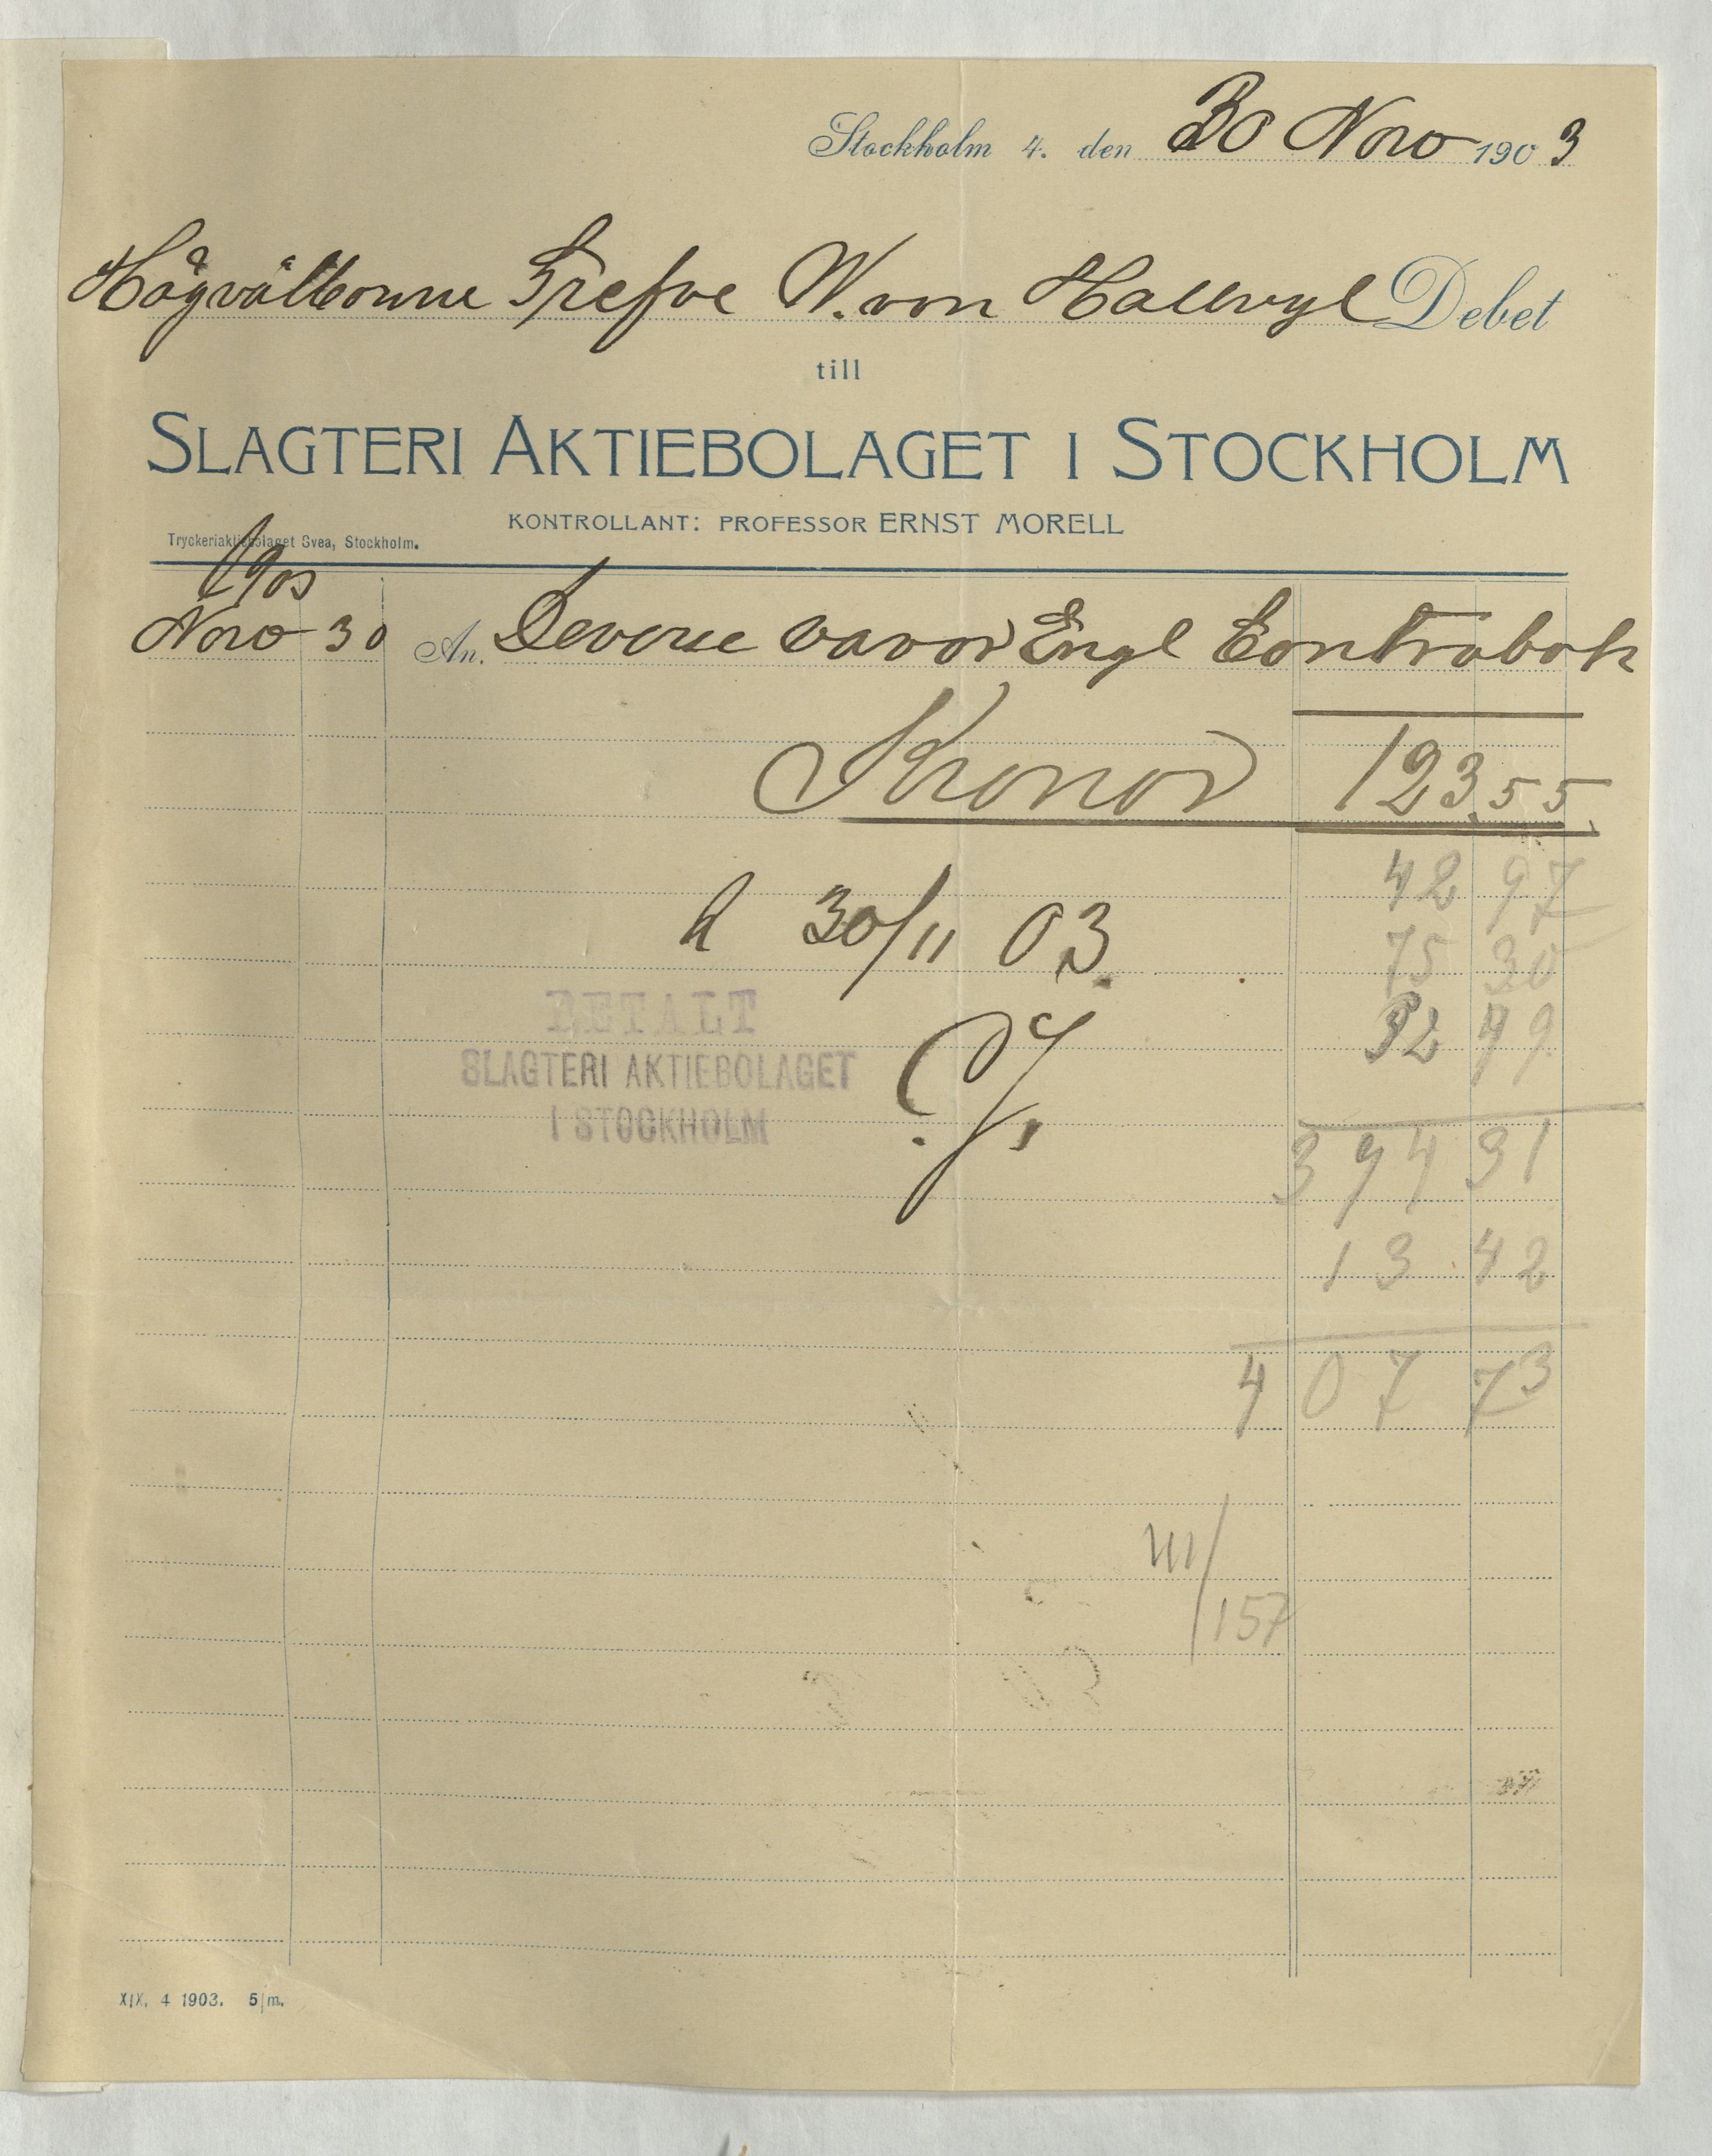 Stockholm 4. den 30 Nov 1903
Högvälborne Grefve W. von Hallwyl Debet
till
SLAGTERI AKTIEBOLAGET I STOCKHOLM
KONTROLLANT: PROFESSOR ERNST MORELL
Tryckeriaktiebolaget Svea, Stockholm.
1903
Nov 30 An. Deverse varor Engl Contrabok
Kronor 123.55
42 97
30/11 03.
75 30
BETALT
32 49
SLAGTERI AKTIEBOLAGET
I STOCKHOLM
394 31
13 42
407 73
157
XIX. 4 1903. 5/m.